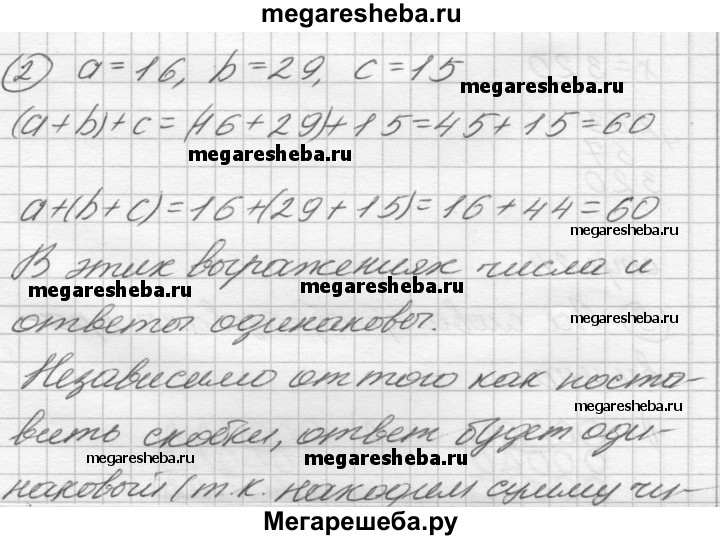 megaresheba.ru
2 a=16, b=29, c=15
megaresheba.ru
(a+b)+c=(16+29)+15=45+15=60
megaresheba.ru
a+(b+c)=16+(29+15)=16+44=60
megaresheba.ru
В этих выражениях числа и
megaresheba.ru
ответы одинаковы.
megaresheba.ru
Независимо от того как поста-
megaresheba.ru
вить скобки, ответ будет оди-
megaresheba.ru
megaresheba.ru
наковый (т.к. находим сумму чи-
Мегарешеба.ру